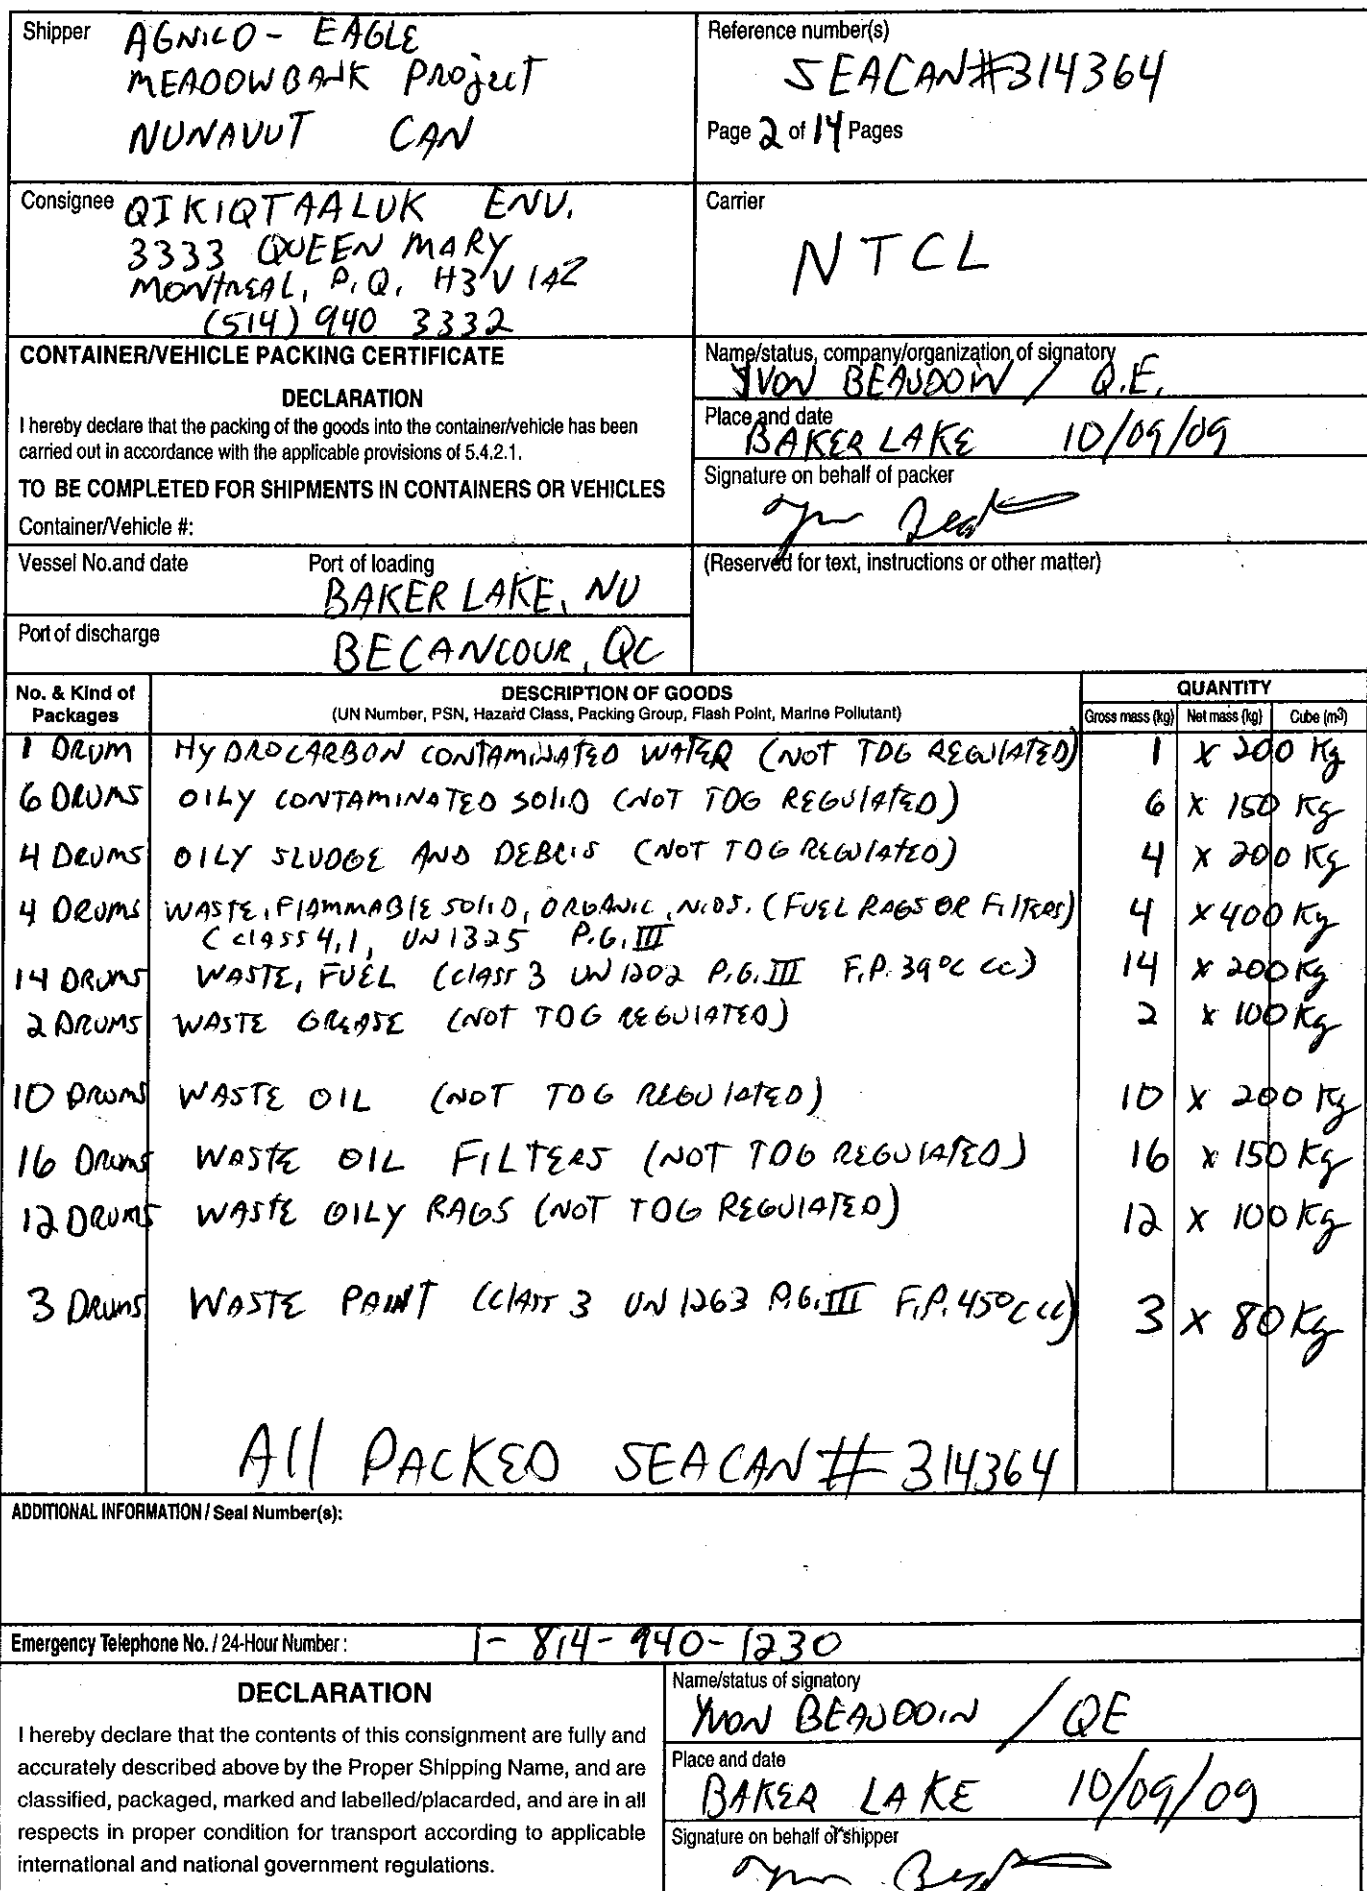 Shipper AGNICO - EAGLE
MEADOWBANK PROJECT
NUNAVUT CAN
Reference number(s)
SEACAN#314364
Page 2 of 14 Pages
Consignee QIKIQTAALUK ENV.
3333 QUEEN MARY
MONTREAL, P.Q. H3V 1A2
(514) 940 3332
Carrier
NTCL
CONTAINER/VEHICLE PACKING CERTIFICATE
DECLARATION
I hereby declare that the packing of the goods into the container/vehicle has been
carried out in accordance with the applicable provisions of 5.4.2.1.
TO BE COMPLETED FOR SHIPMENTS IN CONTAINERS OR VEHICLES
Container/Vehicle #:
Name/status, company/organization of signatory
YVON BEAUDOIN / Q.E.
Place and date
BAKER LAKE 10/09/09
Signature on behalf of packer
Vessel No.and date
Port of loading
BAKER LAKE, NU
(Reserved for text, instructions or other matter)
Port of discharge
BECANCOUR, QC
No. & Kind of Packages
DESCRIPTION OF GOODS
(UN Number, PSN, Hazard Class, Packing Group, Flash Point, Marine Pollutant)
QUANTITY
Gross mass (kg) Net mass (kg) Cube (m³)
1 DRUM HYDROCARBON CONTAMINATED WATER (NOT TDG REGULATED) 1 x 200 Kg
6 DRUMS OILY CONTAMINATED SOLID (NOT TDG REGULATED) 6 x 150 Kg
4 DRUMS OILY SLUDGE AND DEBRIS (NOT TDG REGULATED) 4 x 200 Kg
4 DRUMS WASTE, FLAMMABLE SOLID, ORGANIC, N.O.S. (FUEL RAGS OR FILTERS) 4 x 400 Kg
(CLASS 4.1, UN 1325 P.G. III
14 DRUMS WASTE, FUEL (CLASS 3 UN 1202 P.G. III F.P. 39°C CC) 14 x 200 Kg
2 DRUMS WASTE GREASE (NOT TDG REGULATED) 2 x 100 Kg
10 DRUMS WASTE OIL (NOT TDG REGULATED) 10 x 200 Kg
16 DRUMS WASTE OIL FILTERS (NOT TDG REGULATED) 16 x 150 Kg
12 DRUMS WASTE OILY RAGS (NOT TDG REGULATED) 12 x 100 Kg
3 DRUMS WASTE PAINT (CLASS 3 UN 1263 P.G. III F.P. 45°C CC) 3 x 80 Kg
All PACKED SEACAN # 314364
ADDITIONAL INFORMATION / Seal Number(s):
Emergency Telephone No. / 24-Hour Number : 1-814-940-1230
DECLARATION
I hereby declare that the contents of this consignment are fully and
accurately described above by the Proper Shipping Name, and are
classified, packaged, marked and labelled/placarded, and are in all
respects in proper condition for transport according to applicable
international and national government regulations.
Name/status of signatory
YVON BEAUDOIN / QE
Place and date
BAKER LAKE 10/09/09
Signature on behalf of shipper